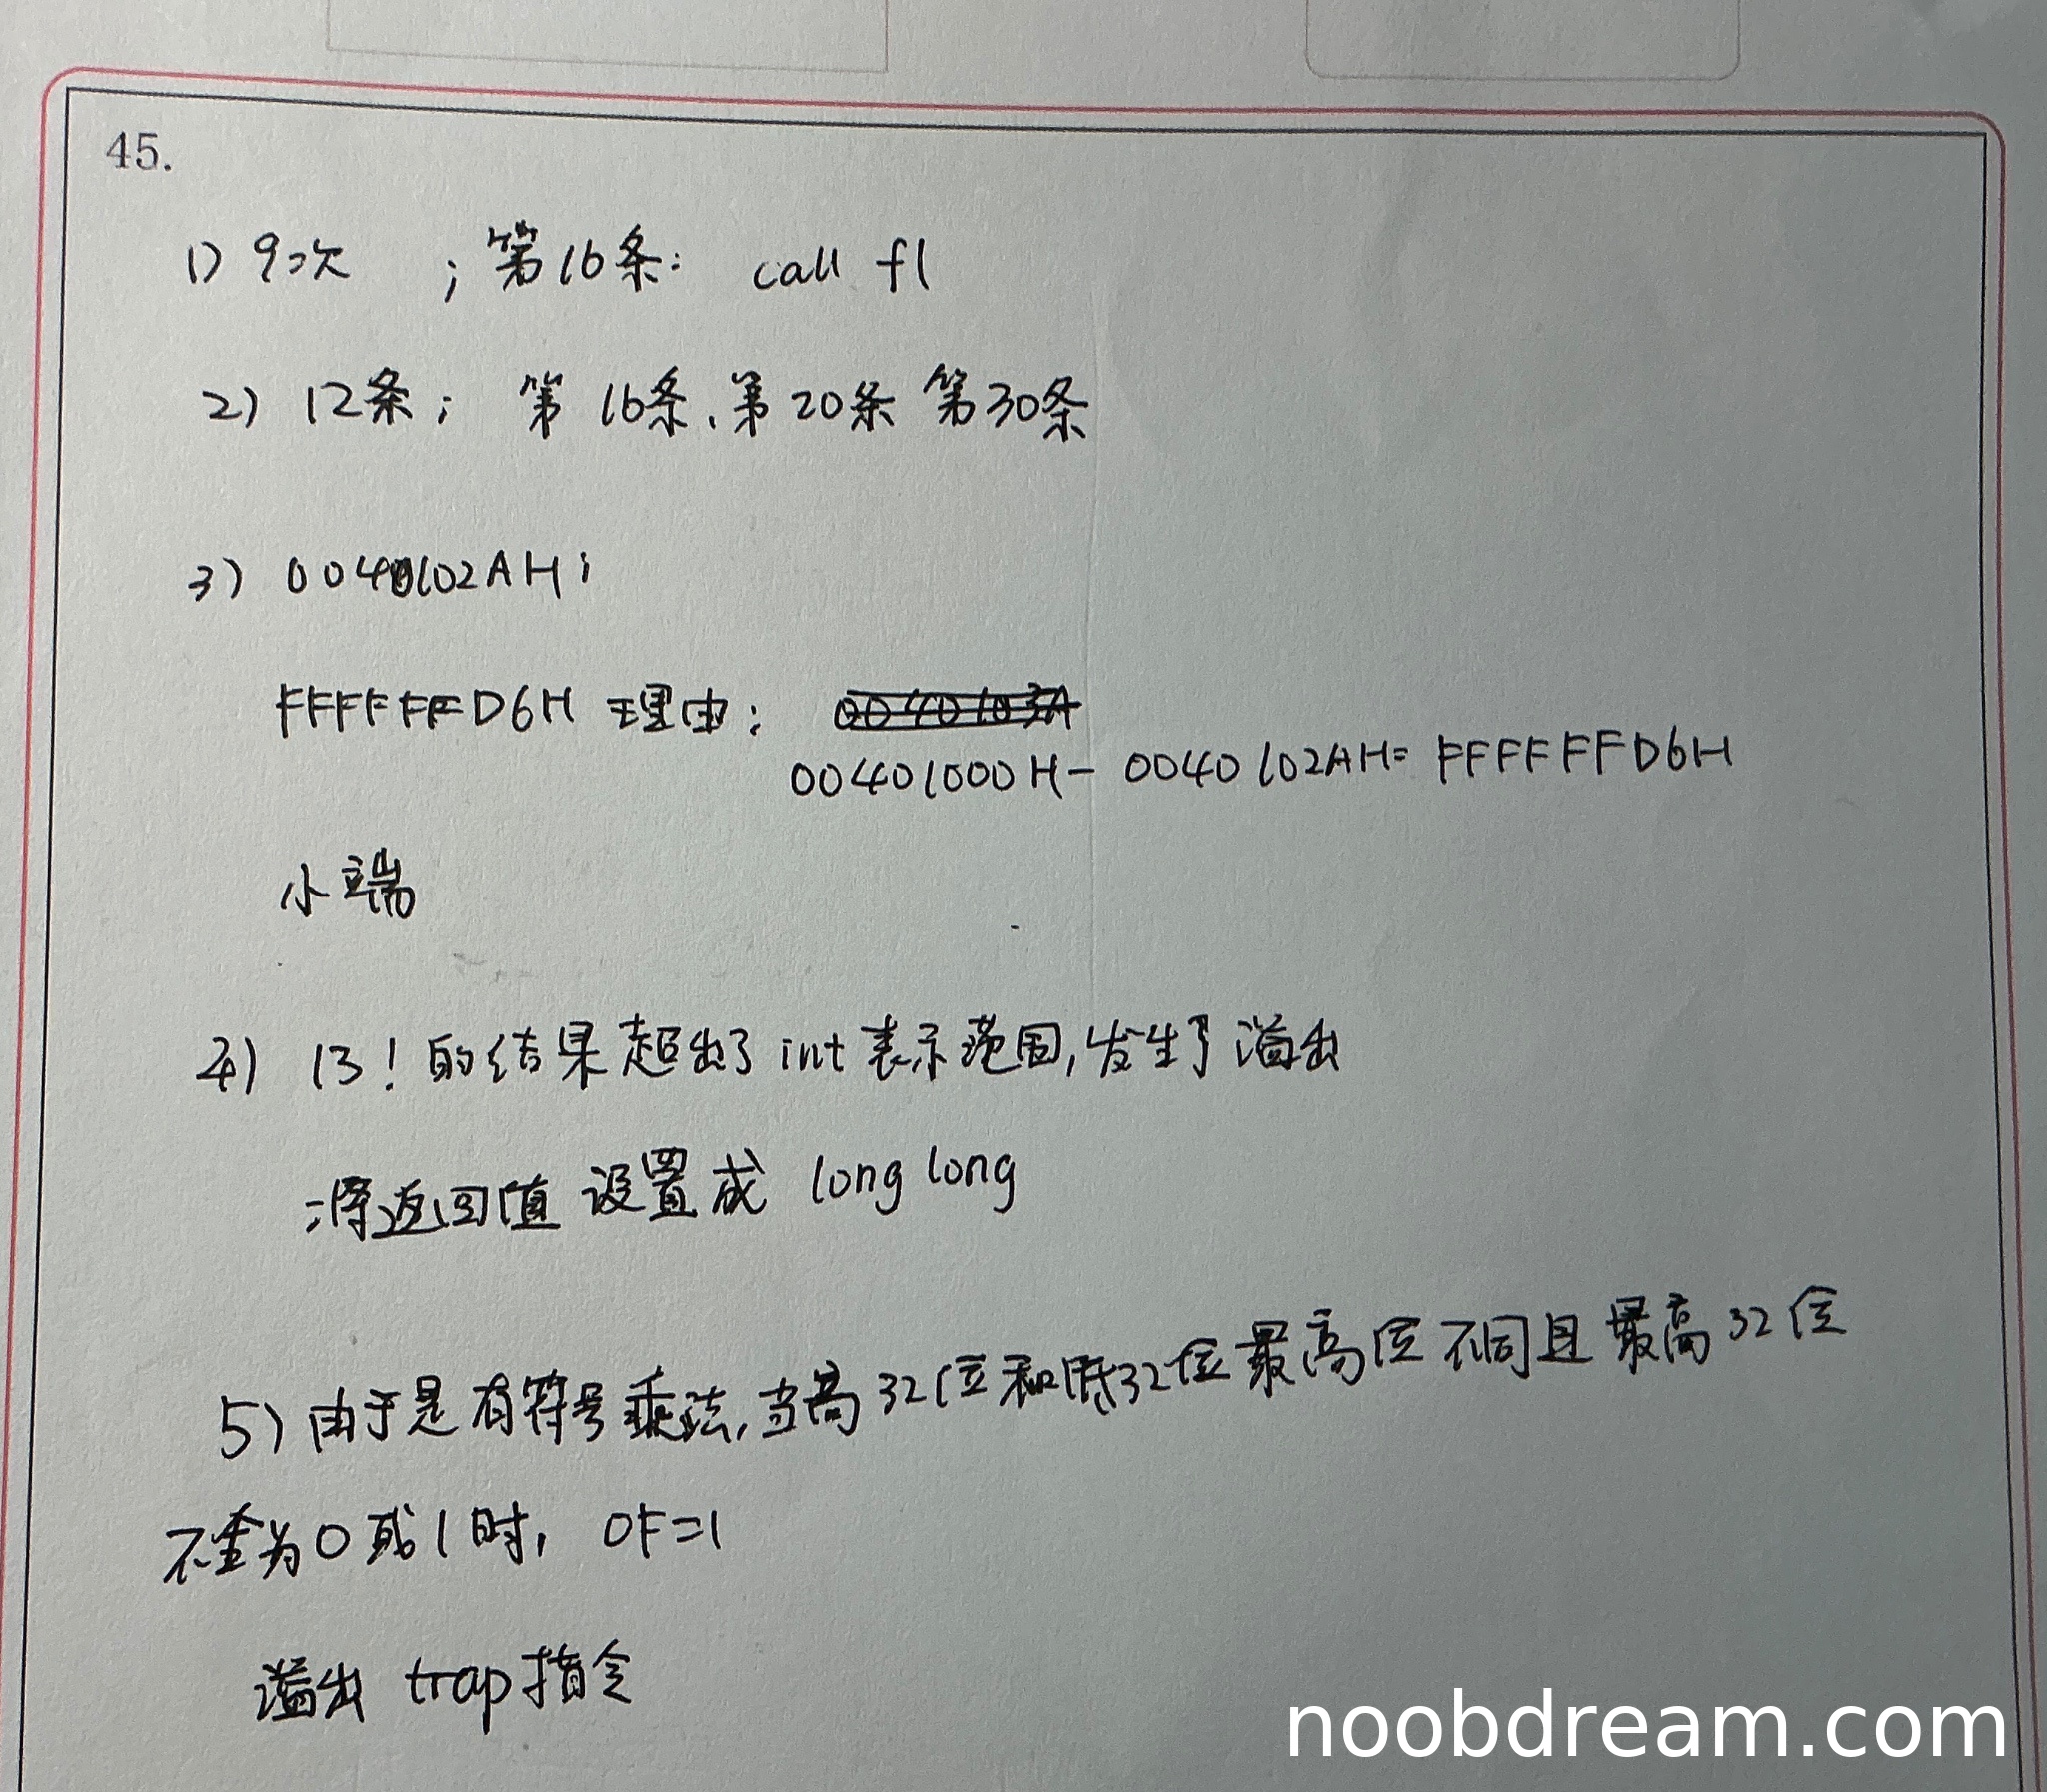 45.
1) 9次 ; 第16条: call f1
2) 12条; 第16条、第20条 第30条
3) 0040102AH;
FFFFFFD6H 理由:
00401000H - 0040102AH = FFFFFFD6H
小端
4) 13! 的结果超出了int表示范围,发生了溢出
;将返回值设置成 long long
5) 由于是有符号乘法,当高32位和低32位最高位不同且最高32位
不全为0或1时, OF=1
溢出 trap指令
noobdream.com